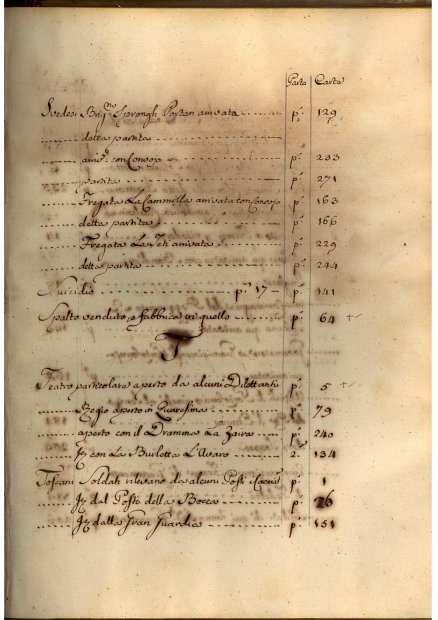 Parte Carte
Svedesi Brig.no Sprongh Postan arivata p.a 129
detta partita
ari.ta con Convojo p.a 233
partita p.a 271
Fregata La Cammilla arrivata con Convojo p.a 163
detta partita p.a 166
Fregata La Teti arivata p.a 229
detta partita p.a 244
Suicidio p.a 17 p.a 141
Spalto venduto, e fabbrica in quello p.a 64
T
Teatro particolare aperto da alcuni Dilettanti p.a 5
Regio aperto in Quaresima p.a 79
aperto con il Dramma La Zaira p.a 240
Iz con La Burletta L'Avaro 2. 134
Toscani Soldati rilevano da alcuni Posti i p.a 1
Iz dal Posto della Bocca p.a 26
Iz dalla Gran Guardia p.a 151